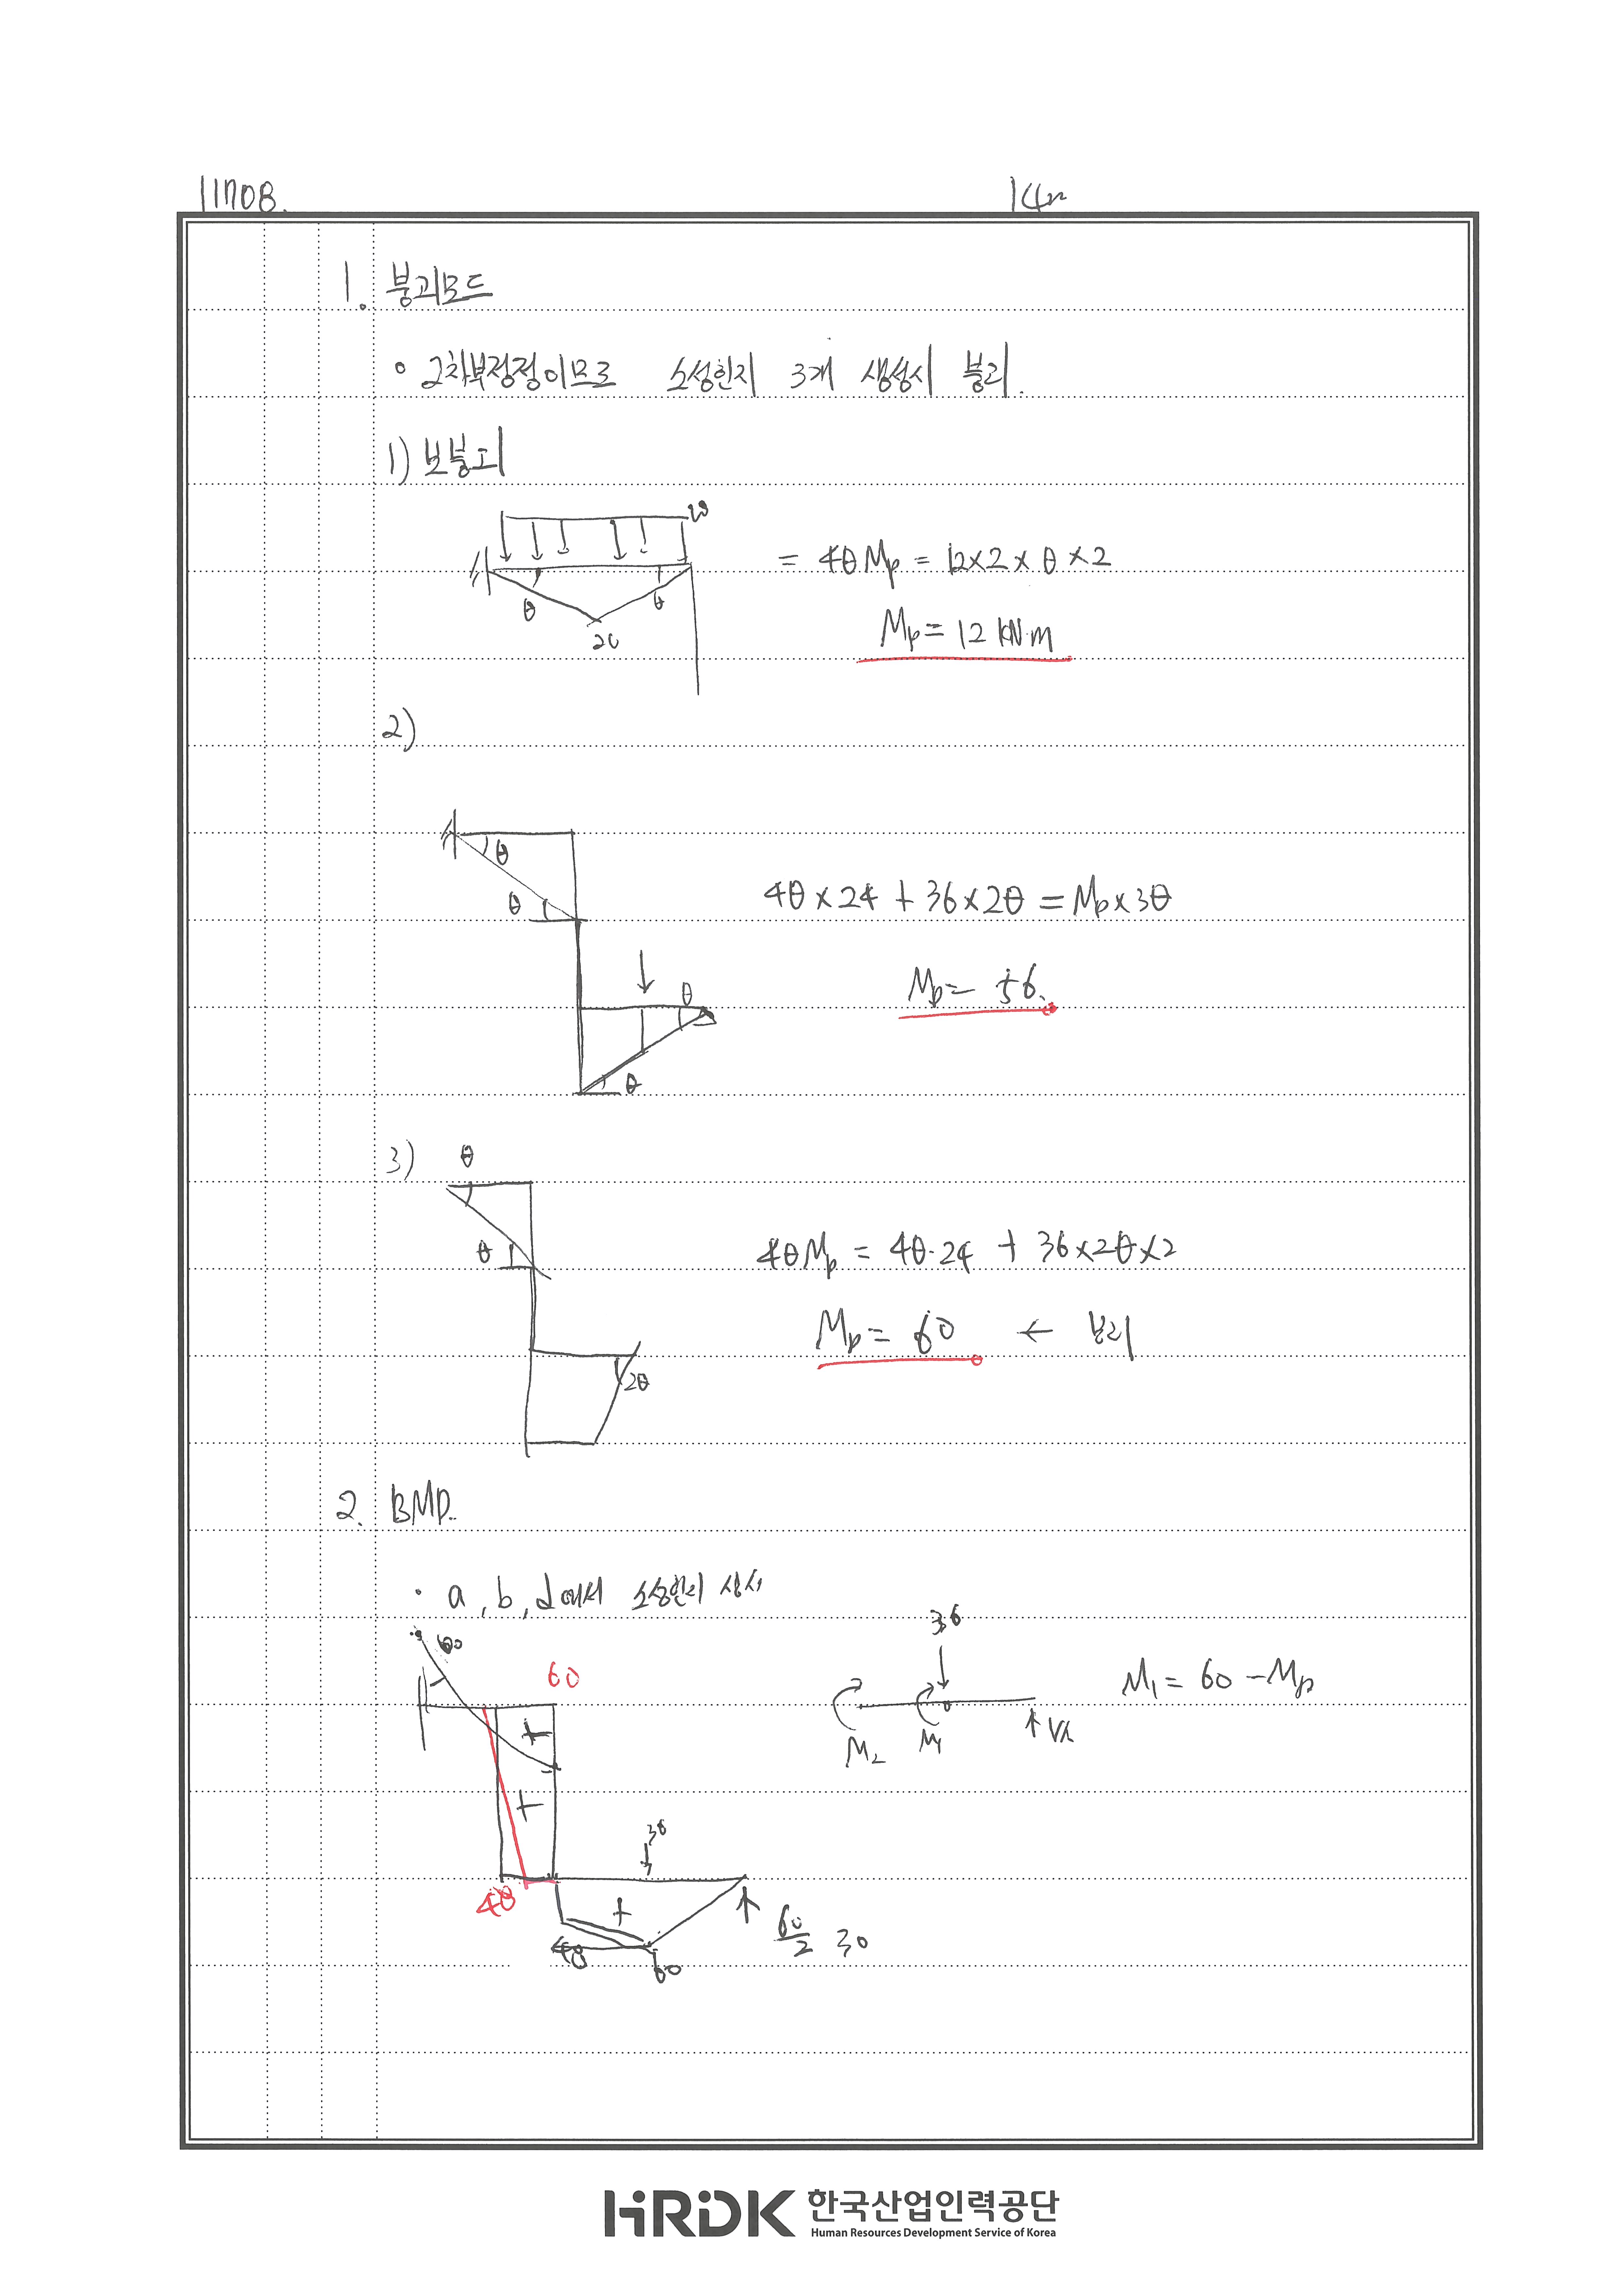 11708.
14m
1. 붕괴모드
• 2차부정정이므로 소성힌지 3개 생성시 붕괴.
1) 보붕괴
w
θ θ
2θ
= 4θMp = 12×2×θ×2
Mp = 12 kN·m
2)
θ
θ
4θ×24 + 36×2θ = Mp×3θ
Mp = 56.
θ
θ
3) θ
θ
4θMp = 4θ·24 + 36×2θ×2
Mp = 60 ← 붕괴
2θ
2. BMD.
· a, b, d에서 소성힌지 생성시
60
60
+
+
36
M₂ M₁
M₁ = 60 - Mp
36
48
+
48
60
60/2 30
HRDK 한국산업인력공단
Human Resources Development Service of Korea